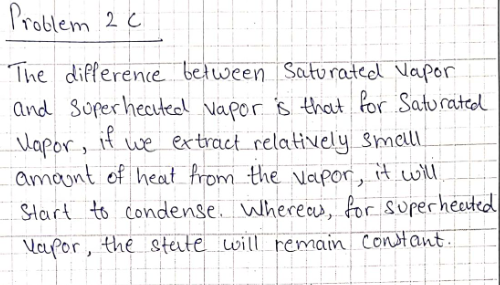 Problem 2 C
The difference between Saturated Vapor
and Superheated vapor is that for Saturated
Vapor, if we extract relatively small
amount of heat from the vapor, it will
start to condense. Whereas, for superheated
vapor, the state will remain constant.